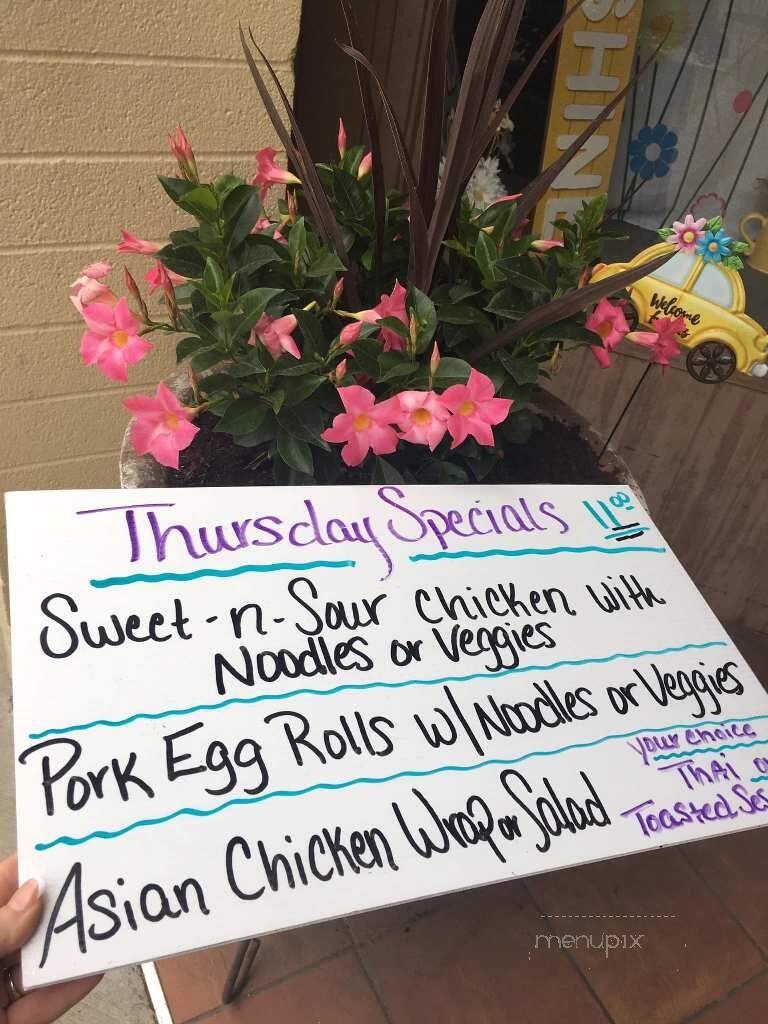 SHINE
Welcome
Thursday Specials 11.00
Sweet-n-Sour Chicken with
Noodles or Veggies
Pork Egg Rolls w/Noodles or Veggies
Asian Chicken Wrap or Salad
your choice
Thai
Toasted
menupix